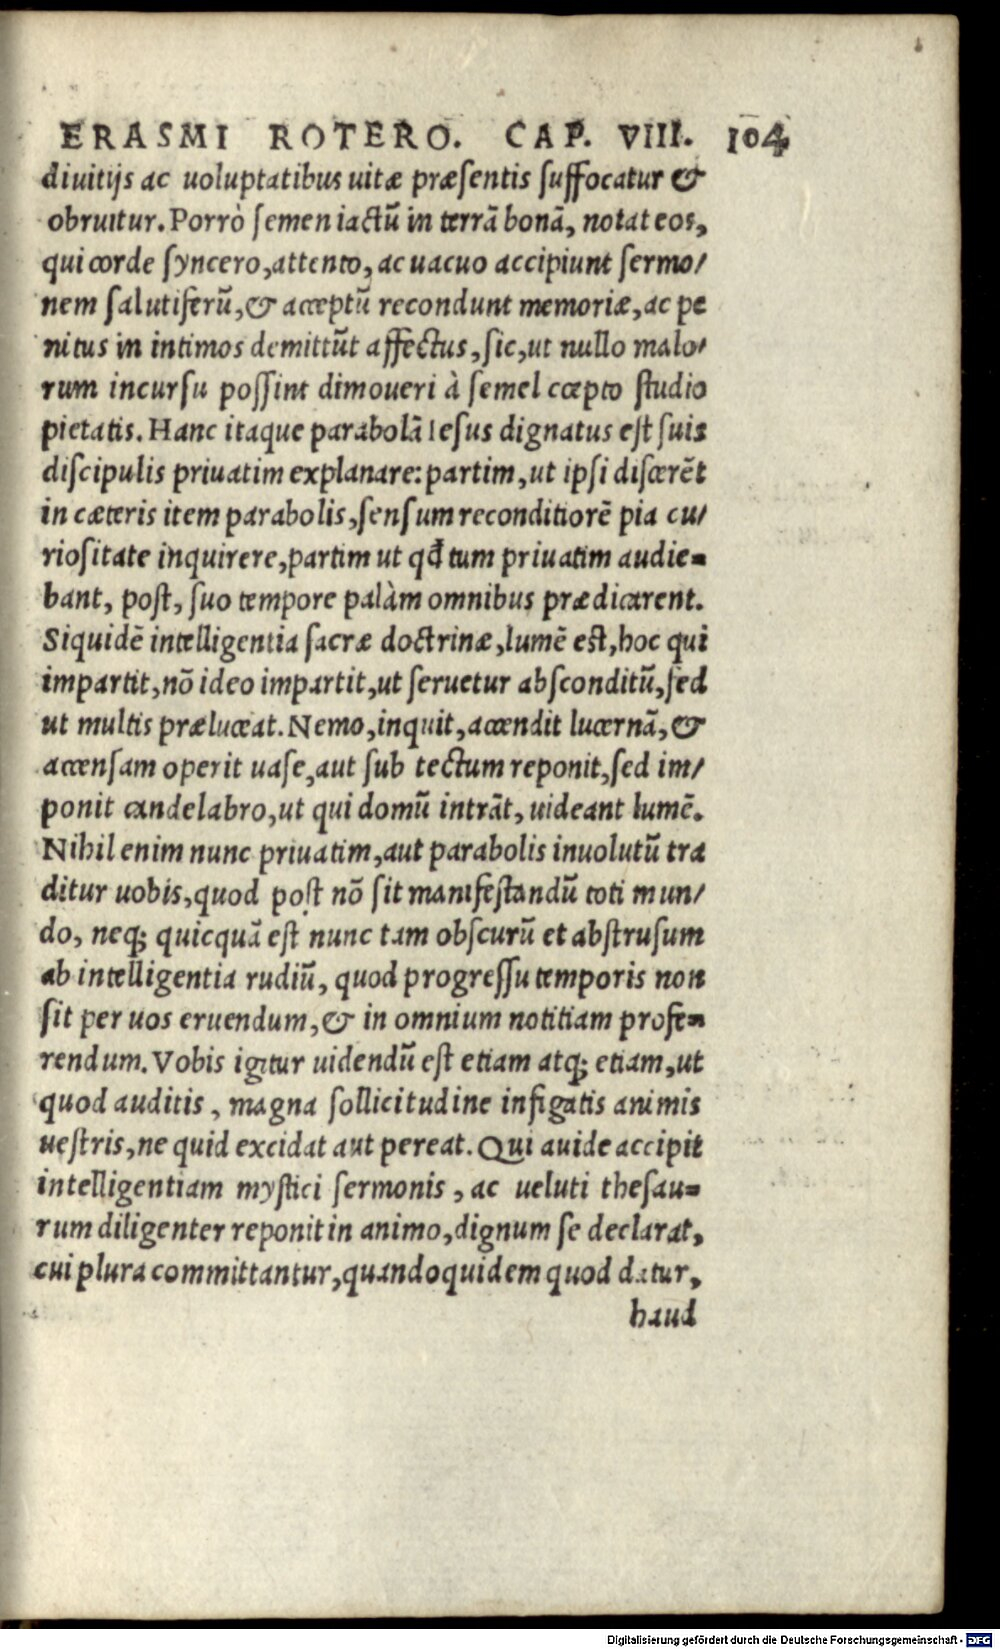 ERASMI ROTERO. CAP. VIII. 104
diuitijs ac uoluptatibus uitæ præsentis suffocatur &
obruitur. Porrò semen iactũ in terrã bonã, notat eos,
qui corde syncero, attento, ac uacuo accipiunt sermo/
nem salutiferũ, & acceptũ recondunt memoriæ, ac pe
nitus in intimos demittũt affectus, sic, ut nullo malo/
rum incursu possint dimoueri à semel cœpto studio
pietatis. Hanc itaque parabolã Iesus dignatus est suis
discipulis priuatim explanare: partim, ut ipsi discerẽt
in cæteris item parabolis, sensum reconditiorẽ pia cu/
riositate inquirere, partim ut qđ tum priuatim audie=
bant, post, suo tempore palàm omnibus prædicarent.
Siquidẽ intelligentia sacræ doctrinæ, lumẽ est, hoc qui
impartit, nõ ideo impartit, ut seruetur absconditũ, sed
ut multis præluceat. Nemo, inquit, accendit lucernã, &
accensam operit uase, aut sub tectum reponit, sed im/
ponit candelabro, ut qui domũ intrãt, uideant lumẽ.
Nihil enim nunc priuatim, aut parabolis inuolutũ tra
ditur uobis, quod post nõ sit manifestandũ toti mun/
do, neq; quicquã est nunc tam obscurũ et abstrusum
ab intelligentia rudiũ, quod progressu temporis non
sit per uos eruendum, & in omnium notitiam profe=
rendum. Vobis igitur uidendũ est etiam atq; etiam, ut
quod auditis, magna sollicitudine infigatis animis
uestris, ne quid excidat aut pereat. Qui auide accipit
intelligentiam mystici sermonis, ac ueluti thesau=
rum diligenter reponit in animo, dignum se declarat,
cui plura committantur, quandoquidem quod datur,
haud
Digitalisierung gefördert durch die Deutsche Forschungsgemeinschaft - DFG